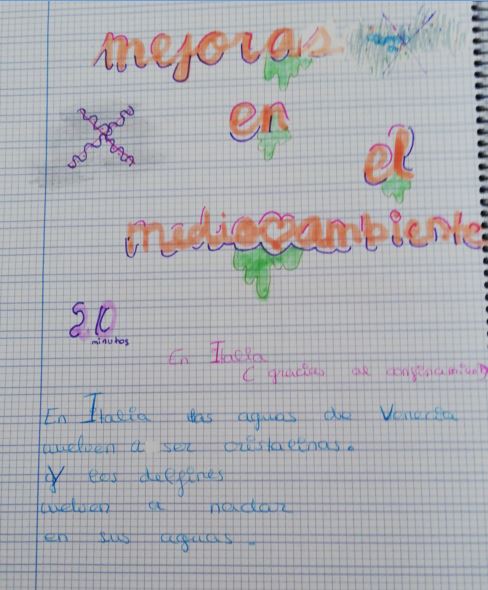 mejoras
en
el
medioambiente
minutos
En Italia
( gracias al confinamiento
En Italia las aguas de Venecia
vuelven a ser cristalinas.
Y los delfines
vuelven a nadar
en sus aguas.